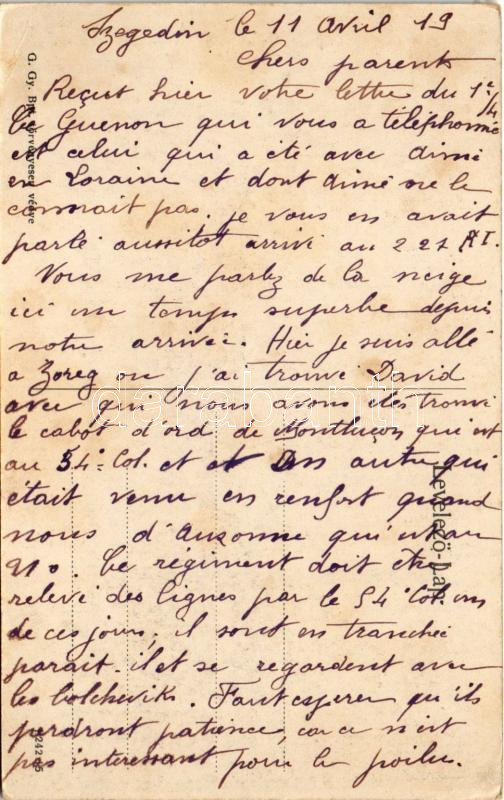 Szegedin le 11 avril 19
Chers parents
Reçut hier votre lettre du 1e/4
Ce Guenon qui vous a téléphonné
est celui qui a été avec aimé
en Loraine et dont aimé ne le
connait pas. je vous en avait
parlé aussitot arrivé au 221 RI.
Vous me parlez de la neige
ici un temps superbe depuis
notre arrivée. Hier je suis allé
a Zoreg ou j'ai trouvé David
avec qui nous avons été trouvé
le cabot d'ord de Montluçon qui est
au 54e Col. et un autre qui
était venu en renfort quand
nous d'Auxonne qui est au
210. Ce régiment doit être
relevé des lignes par le 54e Col. un
de ces jours, il sont en tranchée
parait-il et se regardent avec
les bolcheviks. Faut esperer qu'ils
perdront patience, car ce n'est
pas interessant pour le poilu.
G. Gy. Bpt. törvényesen védve
Levelező-Lap.
darabanth